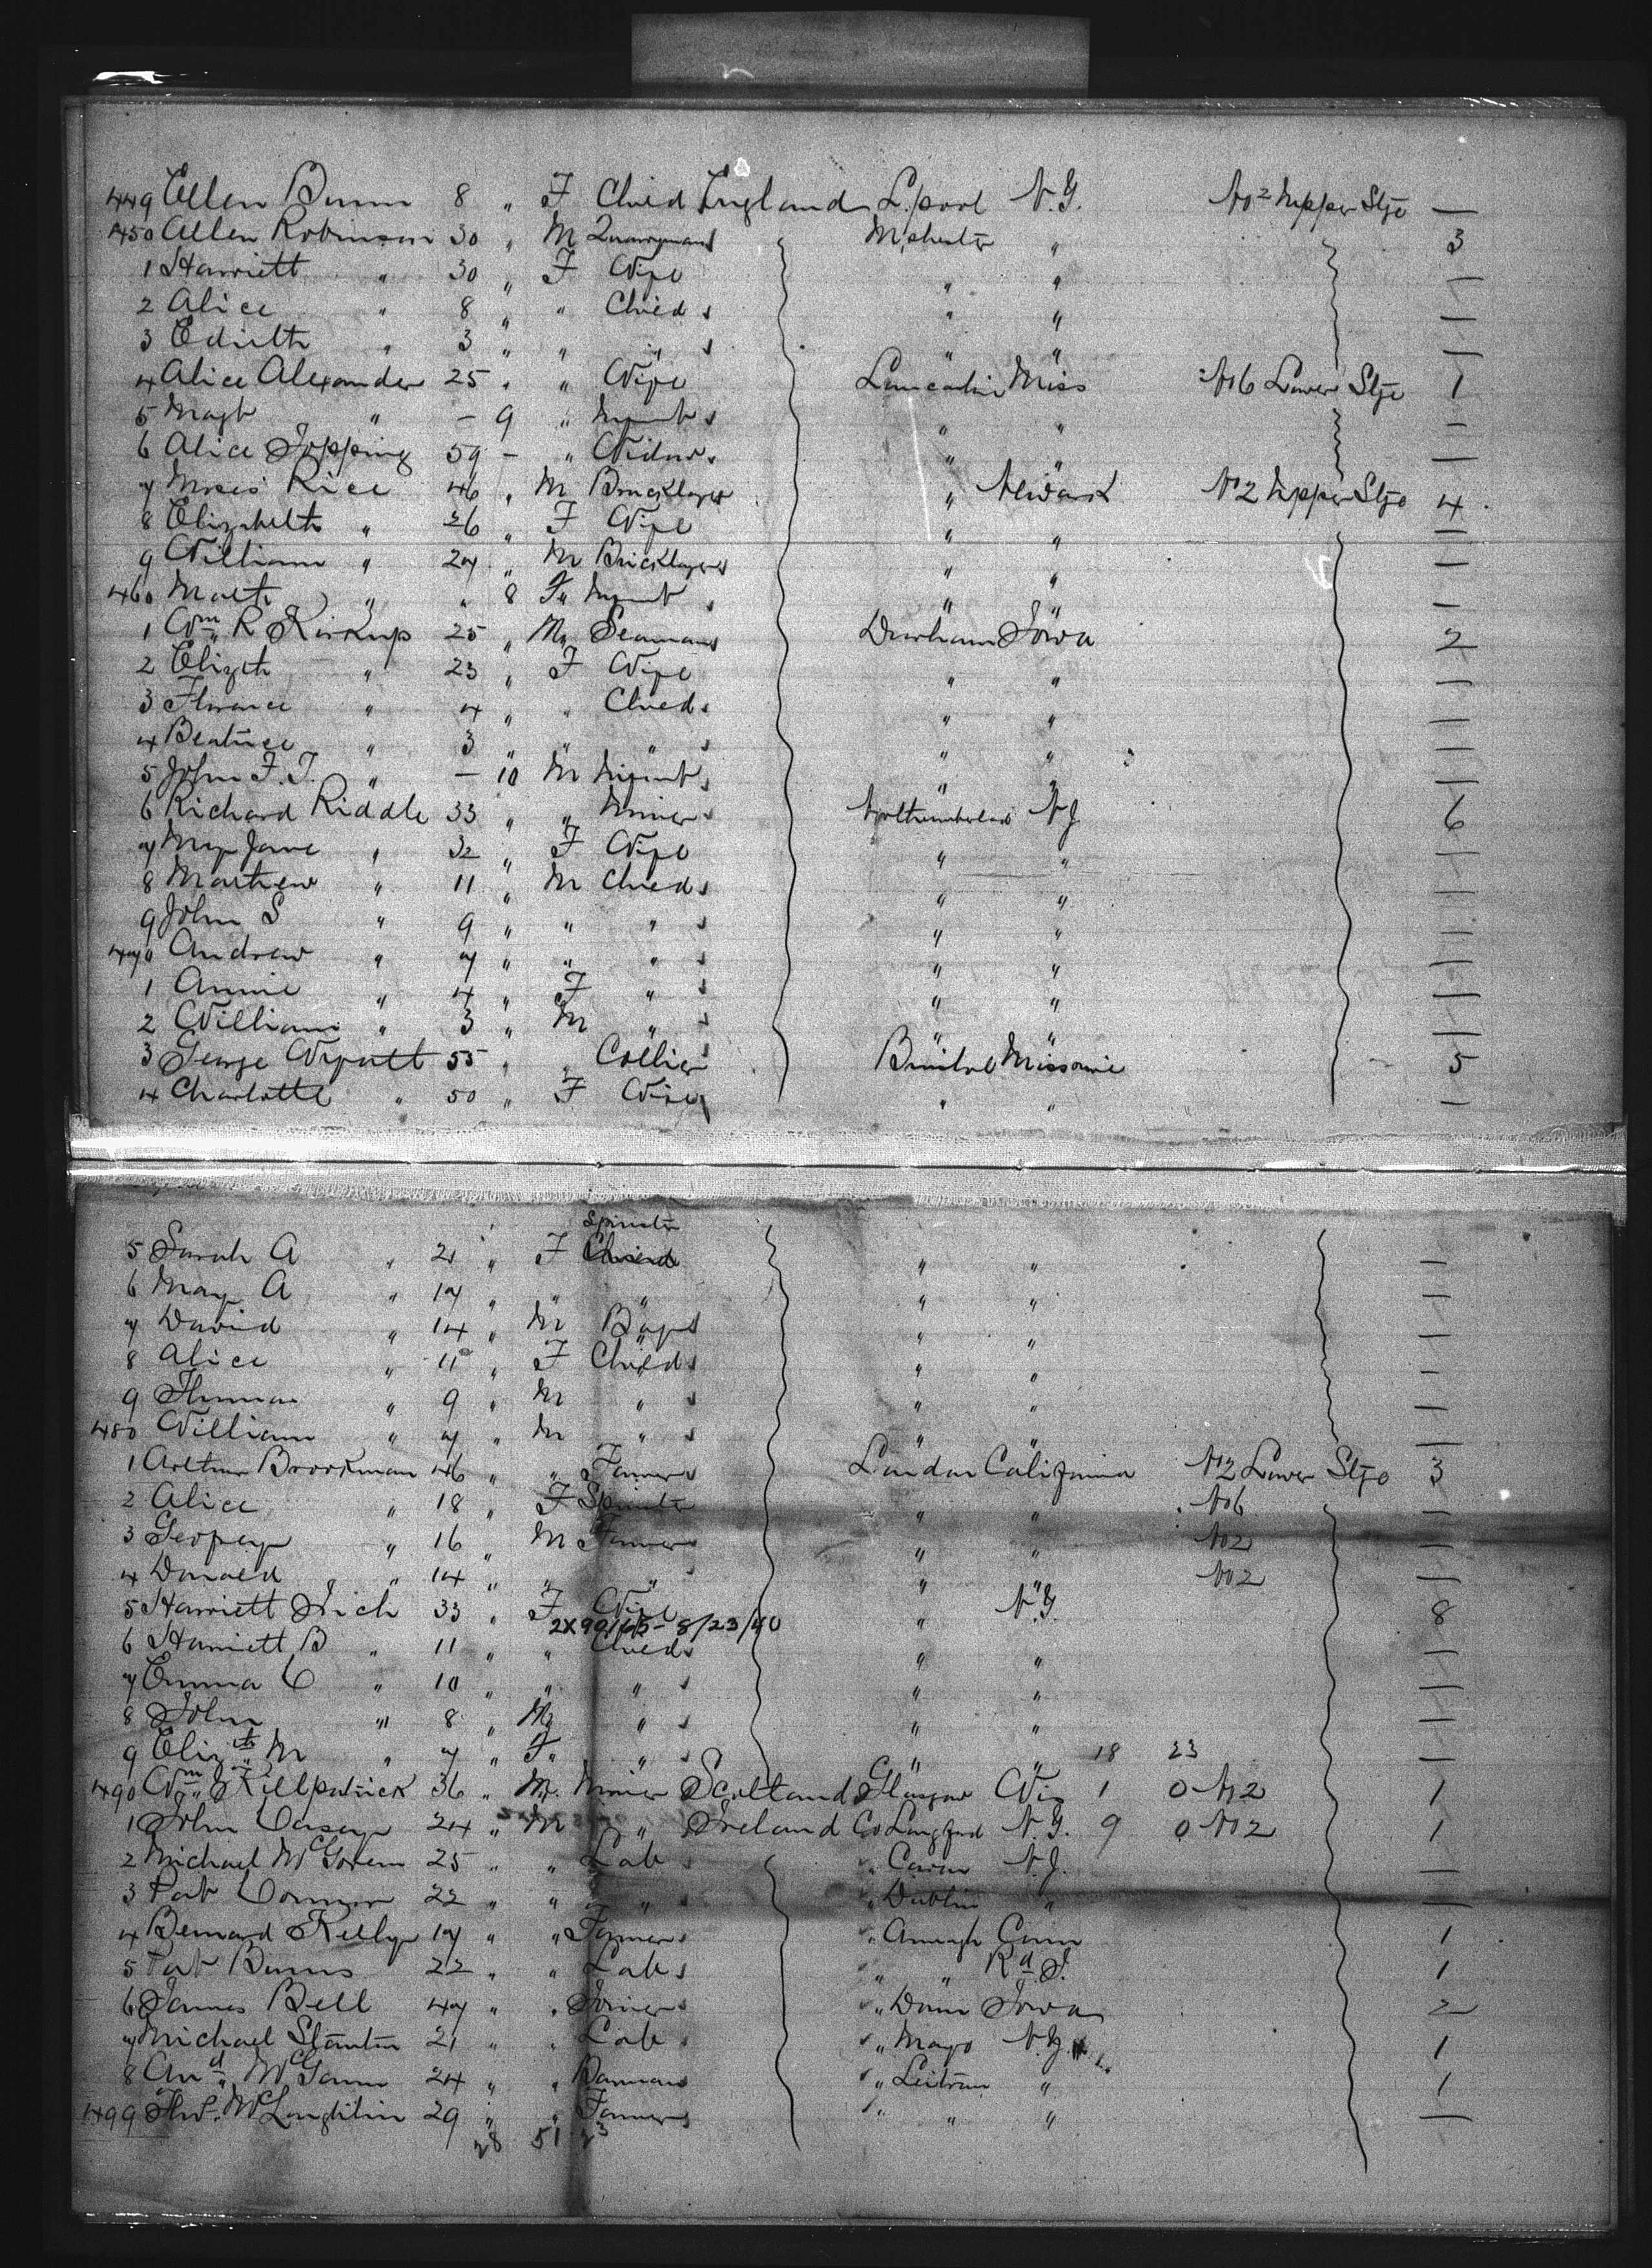 449 Ellen Bunn 8 " F Child England L.pool N.Y. No 2 Upper Stge —
450 Allen Robinson 30 " M Quarryman M,chester " 3
1 Harriett " 30 " F Wife " " —
2 Alice " 8 " " Child " " —
3 Edith " 3 " " " " " —
4 Alice Alexander 25 " " Wife Lancashire Miss No 6 Lower Stge 1
5 Magt " — 9 " Infant " " —
6 Alice Topping 59 — " Widow " " —
7 Moses Rice 46 " M Bricklayer " Newark No 2 Upper Stge 4
8 Elizabeth " 26 " F Wife " " —
9 William " 27 " M Bricklayer " " —
460 " " 8 F Infant " " —
1 Wm R Kirkup 25 " M Seaman Durham Iowa 2
2 Elizth " 23 " F Wife " " —
3 Florence " 4 " " Child " " —
4 Beatrice " 3 " " " " " —
5 John F. T. " — 10 M Infant " " —
6 Richard Riddle 33 " " Miner Northumberland N.J 6
7 Mary Jane " 32 " F Wife " " —
8 Matthew " 11 " M Child " " —
9 John S " 9 " " " " " —
470 Andrew " 7 " " " " " —
1 Annie " 4 " F " " " —
2 William " 3 " M " " " —
3 George Wyatt 55 " " Collier Bristol Missouri 5
4 Charlotte " 50 " F Wife " " —
Spinster
5 Sarah A " 21 " F Child " " —
6 Mary A " 17 " " " " " —
7 David " 14 " M Boy " " —
8 Alice " 11 " F Child " " —
9 Thomas " 9 " M " " " —
480 William " 7 " M " " " —
1 Arthur Brookman 46 " " Farmer London California No 2 Lower Stge 3
2 Alice " 18 " F Spinster " " No 6 —
3 " 16 " M Farmer " " No 2 —
4 Donald " 14 " " " " " No 2 —
5 Harriett 33 " F Wife " N.Y. 8
2X90165 - 8/23/40
6 Harriett B " 11 " " Child " " —
7 Emma C " 10 " " " " " —
8 John " 8 " M " " " —
9 Elizth M " 7 " F " " " 18 23 —
490 Wm Killpatrick 36 " M Miner Scotland Glasgow Wis 1 0 No 2 1
1 John Casey 24 " M " Ireland Co Longford N.Y. 9 0 No 2 1
2 Michael McGovern 25 " " Lab " Cavan N.J. —
3 Pat Connor 22 " " " " Dublin " —
4 Bernard Kelly 17 " " Farmer " Armagh Conn 1
5 Pat Burns 22 " " Lab " " Rd I. 1
6 James Bell 47 " " Joiner " Down Iowa 2
7 Michael Stanton 21 " " Lab " Mayo N.Y. 1
8 And McGann 24 " " Barman " Leitrim " 1
499 Thos. McLoughlin 29 " " Farmer " " " —
28 51 23